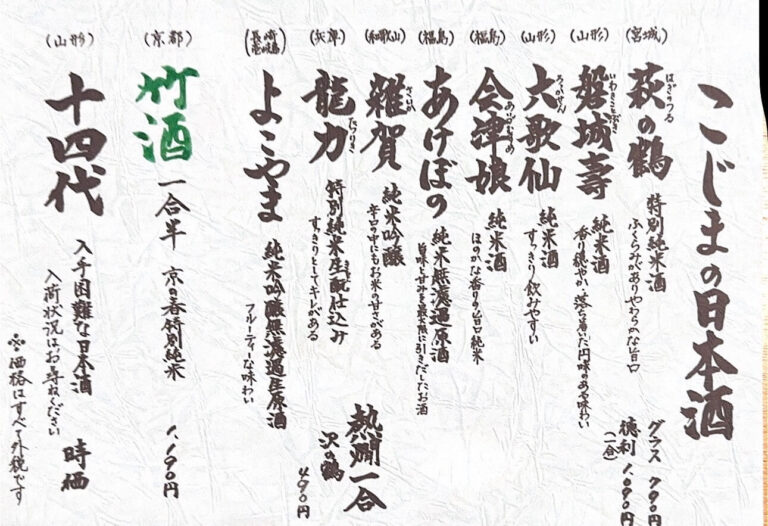 こじまの日本酒
(宮城)
はぎのつる
萩の鶴
特別純米酒
ふくらみがありやわらかな旨口
グラス 790円
徳利 1,090円
(一合)
(山形)
いわきことぶき
磐城壽
純米酒
香り穏やか、落ち着いた円味のある味わい
(山形)
ろっかせん
六歌仙
純米酒
すっきり飲みやすい
(福島)
あいづむすめ
会津娘
純米酒
ほのかな香り旨口純米
(福島)
あけぼの
純米無濾過原酒
旨味と甘みを最大限に引きだしたお酒
(和歌山)
さいか
雑賀
純米吟醸
辛口の中にもお米の甘さがある
熱燗一合
沢の鶴
490円
(兵庫)
たつりき
龍力
特別純米生酛仕込み
すっきりとしてキレがある
(長崎 壱岐島)
よこやま
純米吟醸無濾過生原酒
フルーティーな味わい
(京都)
竹酒
一合半 京の春特別純米 1,190円
(山形)
十四代
入手困難な日本酒 時価
入荷状況はお尋ねください
※価格はすべて外税です